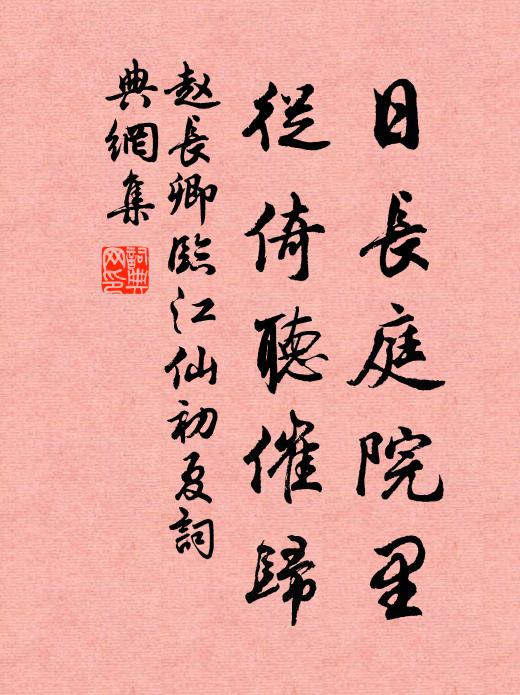 日長庭院里
從倚聽催歸
赵長卿臨江仙初夏詞
典網集
詞典網印